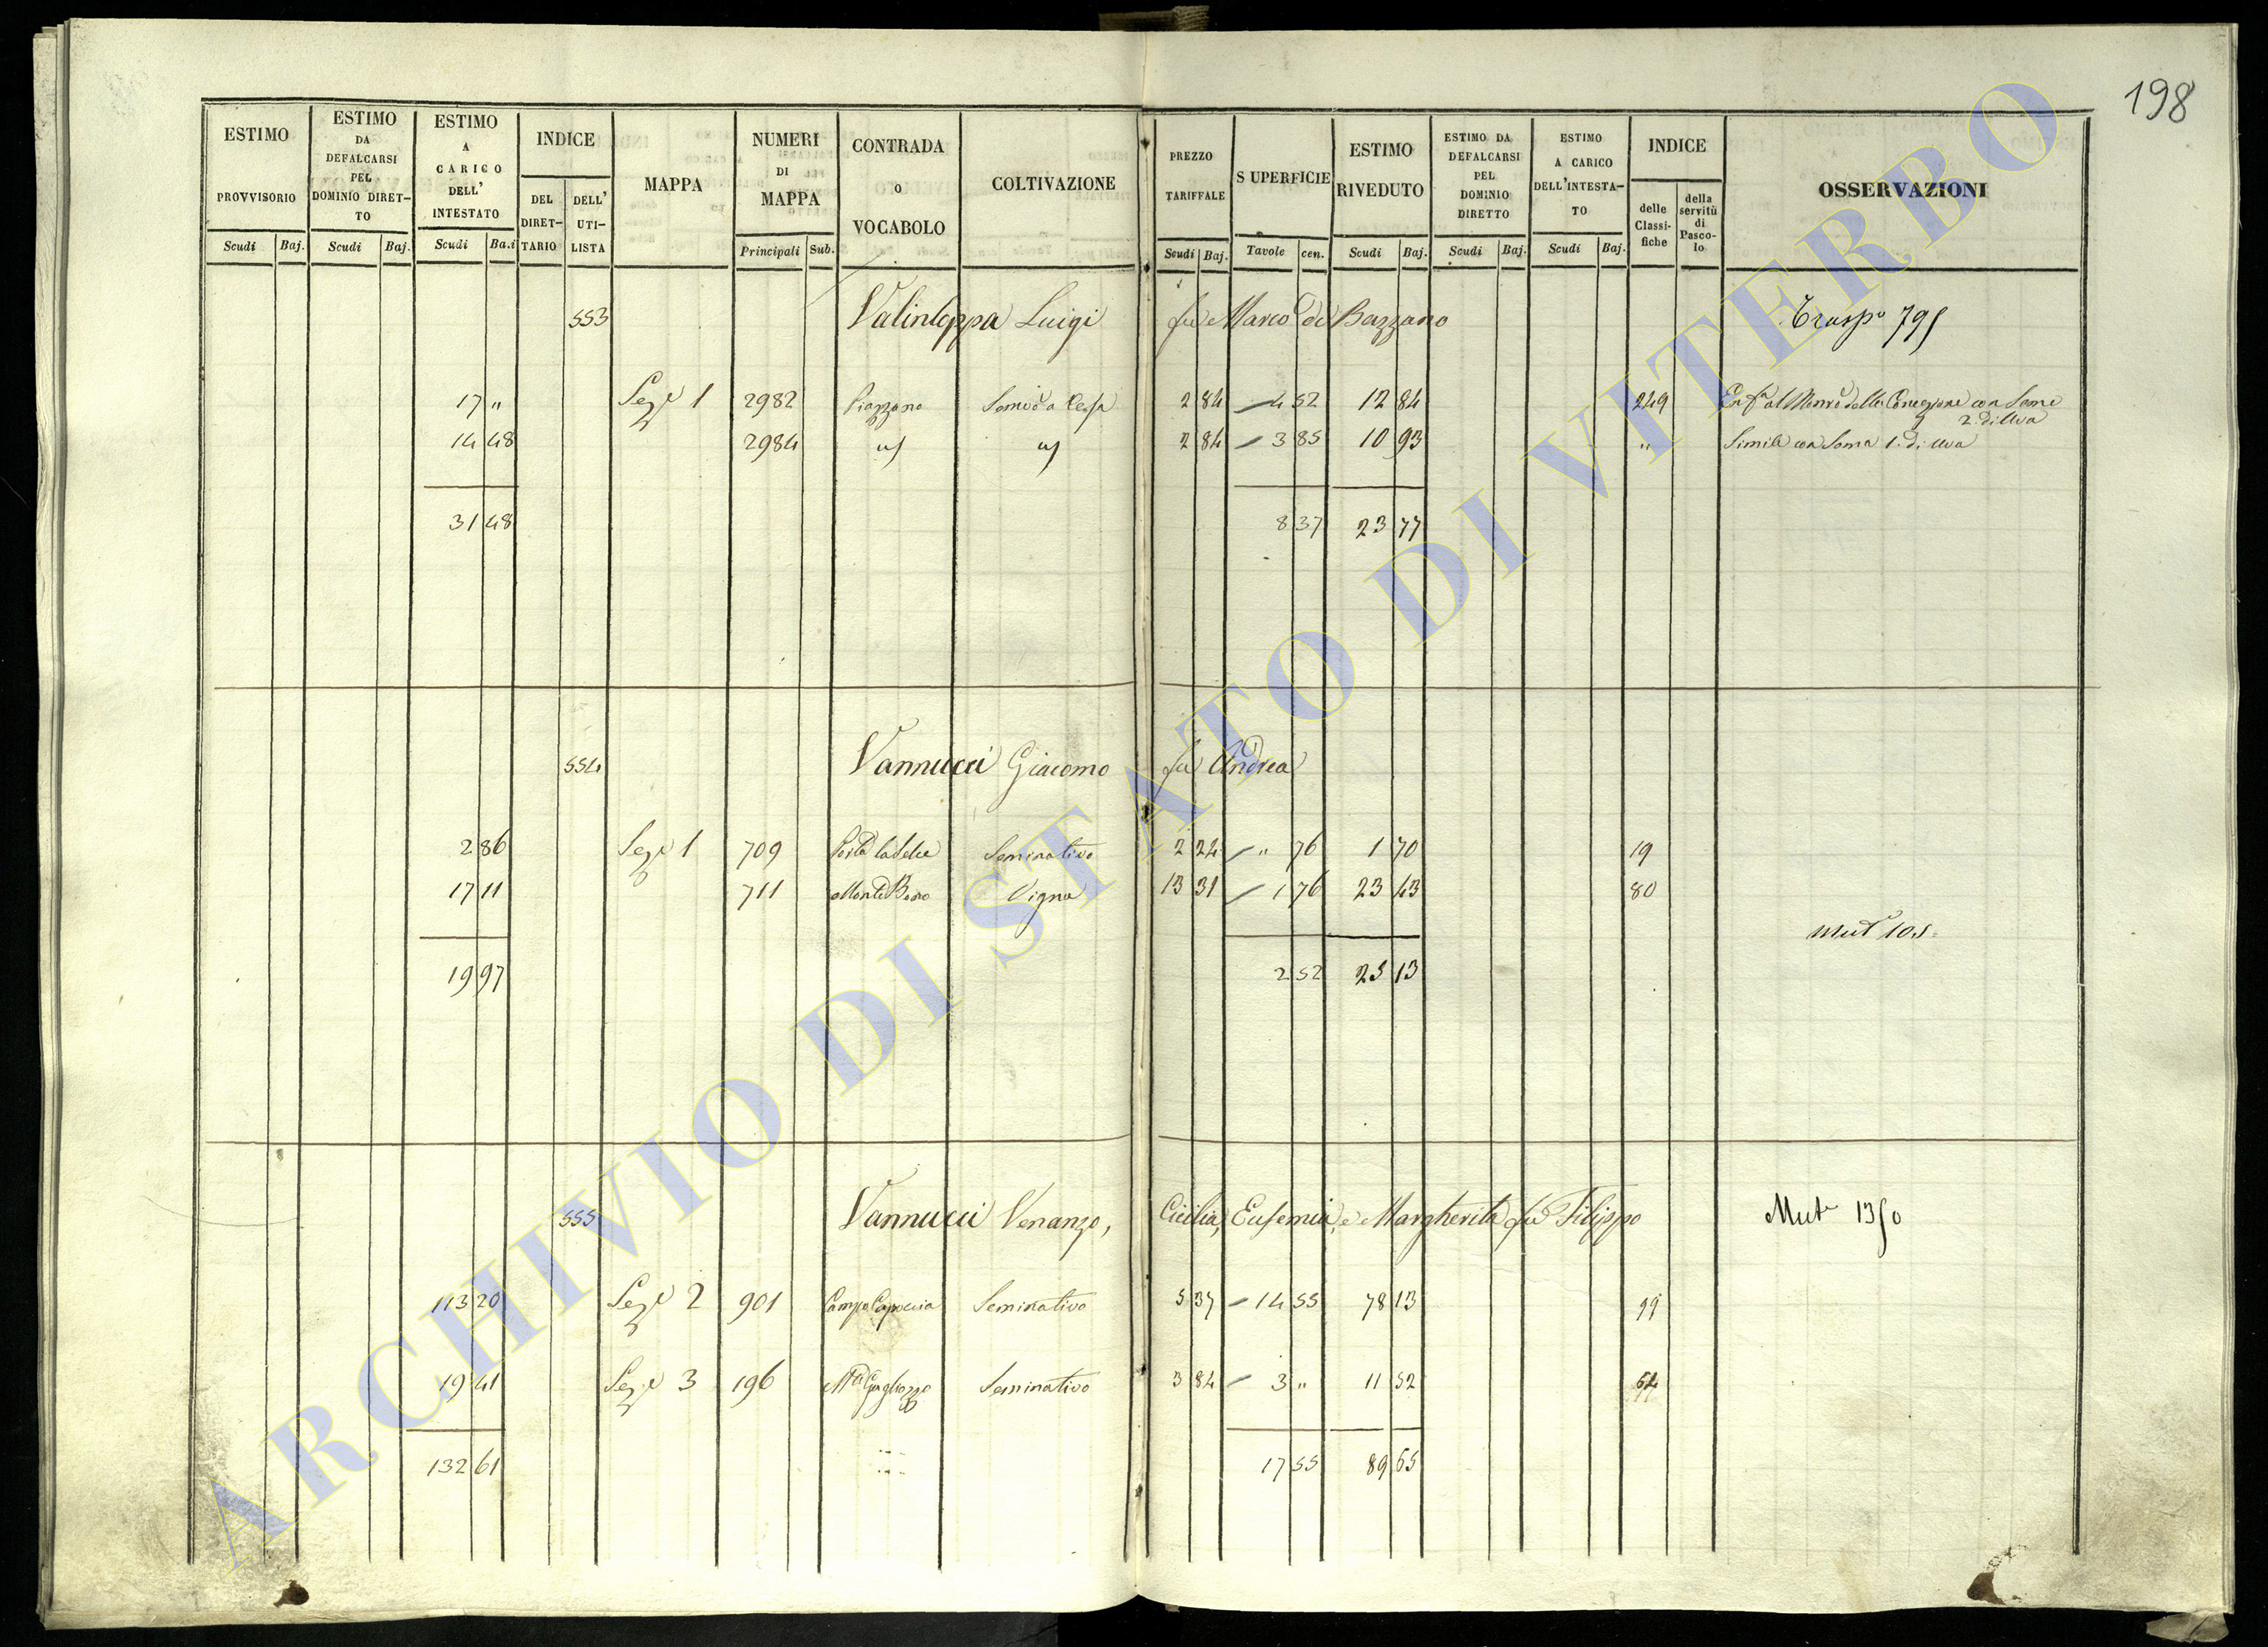 198
ESTIMO PROVVISORIO Scudi Baj.
ESTIMO DA DEFALCARSI PEL DOMINIO DIRET-TO Scudi Baj.
ESTIMO A CARICO DELL' INTESTATO Scudi Ba.i
INDICE DEL DIRET-TARIO DELL' UTI-LISTA
MAPPA
NUMERI DI MAPPA Principali Sub.
CONTRADA O VOCABOLO
COLTIVAZIONE
PREZZO TARIFFALE Scudi Baj.
SUPERFICIE Tavole cen.
ESTIMO RIVEDUTO Scudi Baj.
ESTIMO DA DEFALCARSI PEL DOMINIO DIRETTO Scudi Baj.
ESTIMO A CARICO DELL'INTESTA-TO Scudi Baj.
INDICE delle Classi-fiche della servitù di Pasco-lo
OSSERVAZIONI
553 Valinloppa Luigi fu Marco di Bazzano Trasp° 795
17 " Sez.e 1 2982 Piazzano 2 84 4 52 12 84 249 con Some 2. di Uva
14 48 2984 2 84 3 85 10 93 " Simile con Soma 1. di Uva
31 48 8 37 23 77
554 Vannucci Giacomo fu Andrea
2 86 Sez.e 1 709 Seminativo 2 24 " 76 1 70 19
17 11 711 Vigna 13 31 1 76 23 43 80
Mut 105
19 97 2 52 25 13
555 Vannucci Venanzo, Cicilia, Eufemia, e Margherita fu Filippo Mut.e 1350
113 20 Sez.e 2 901 Campo Capoccia Seminativo 5 37 14 55 78 13 99
19 41 Sez.e 3 196 Seminativo 3 84 3 " 11 52 64
132 61 17 55 89 65
ARCHIVIO DI STATO DI VITERBO